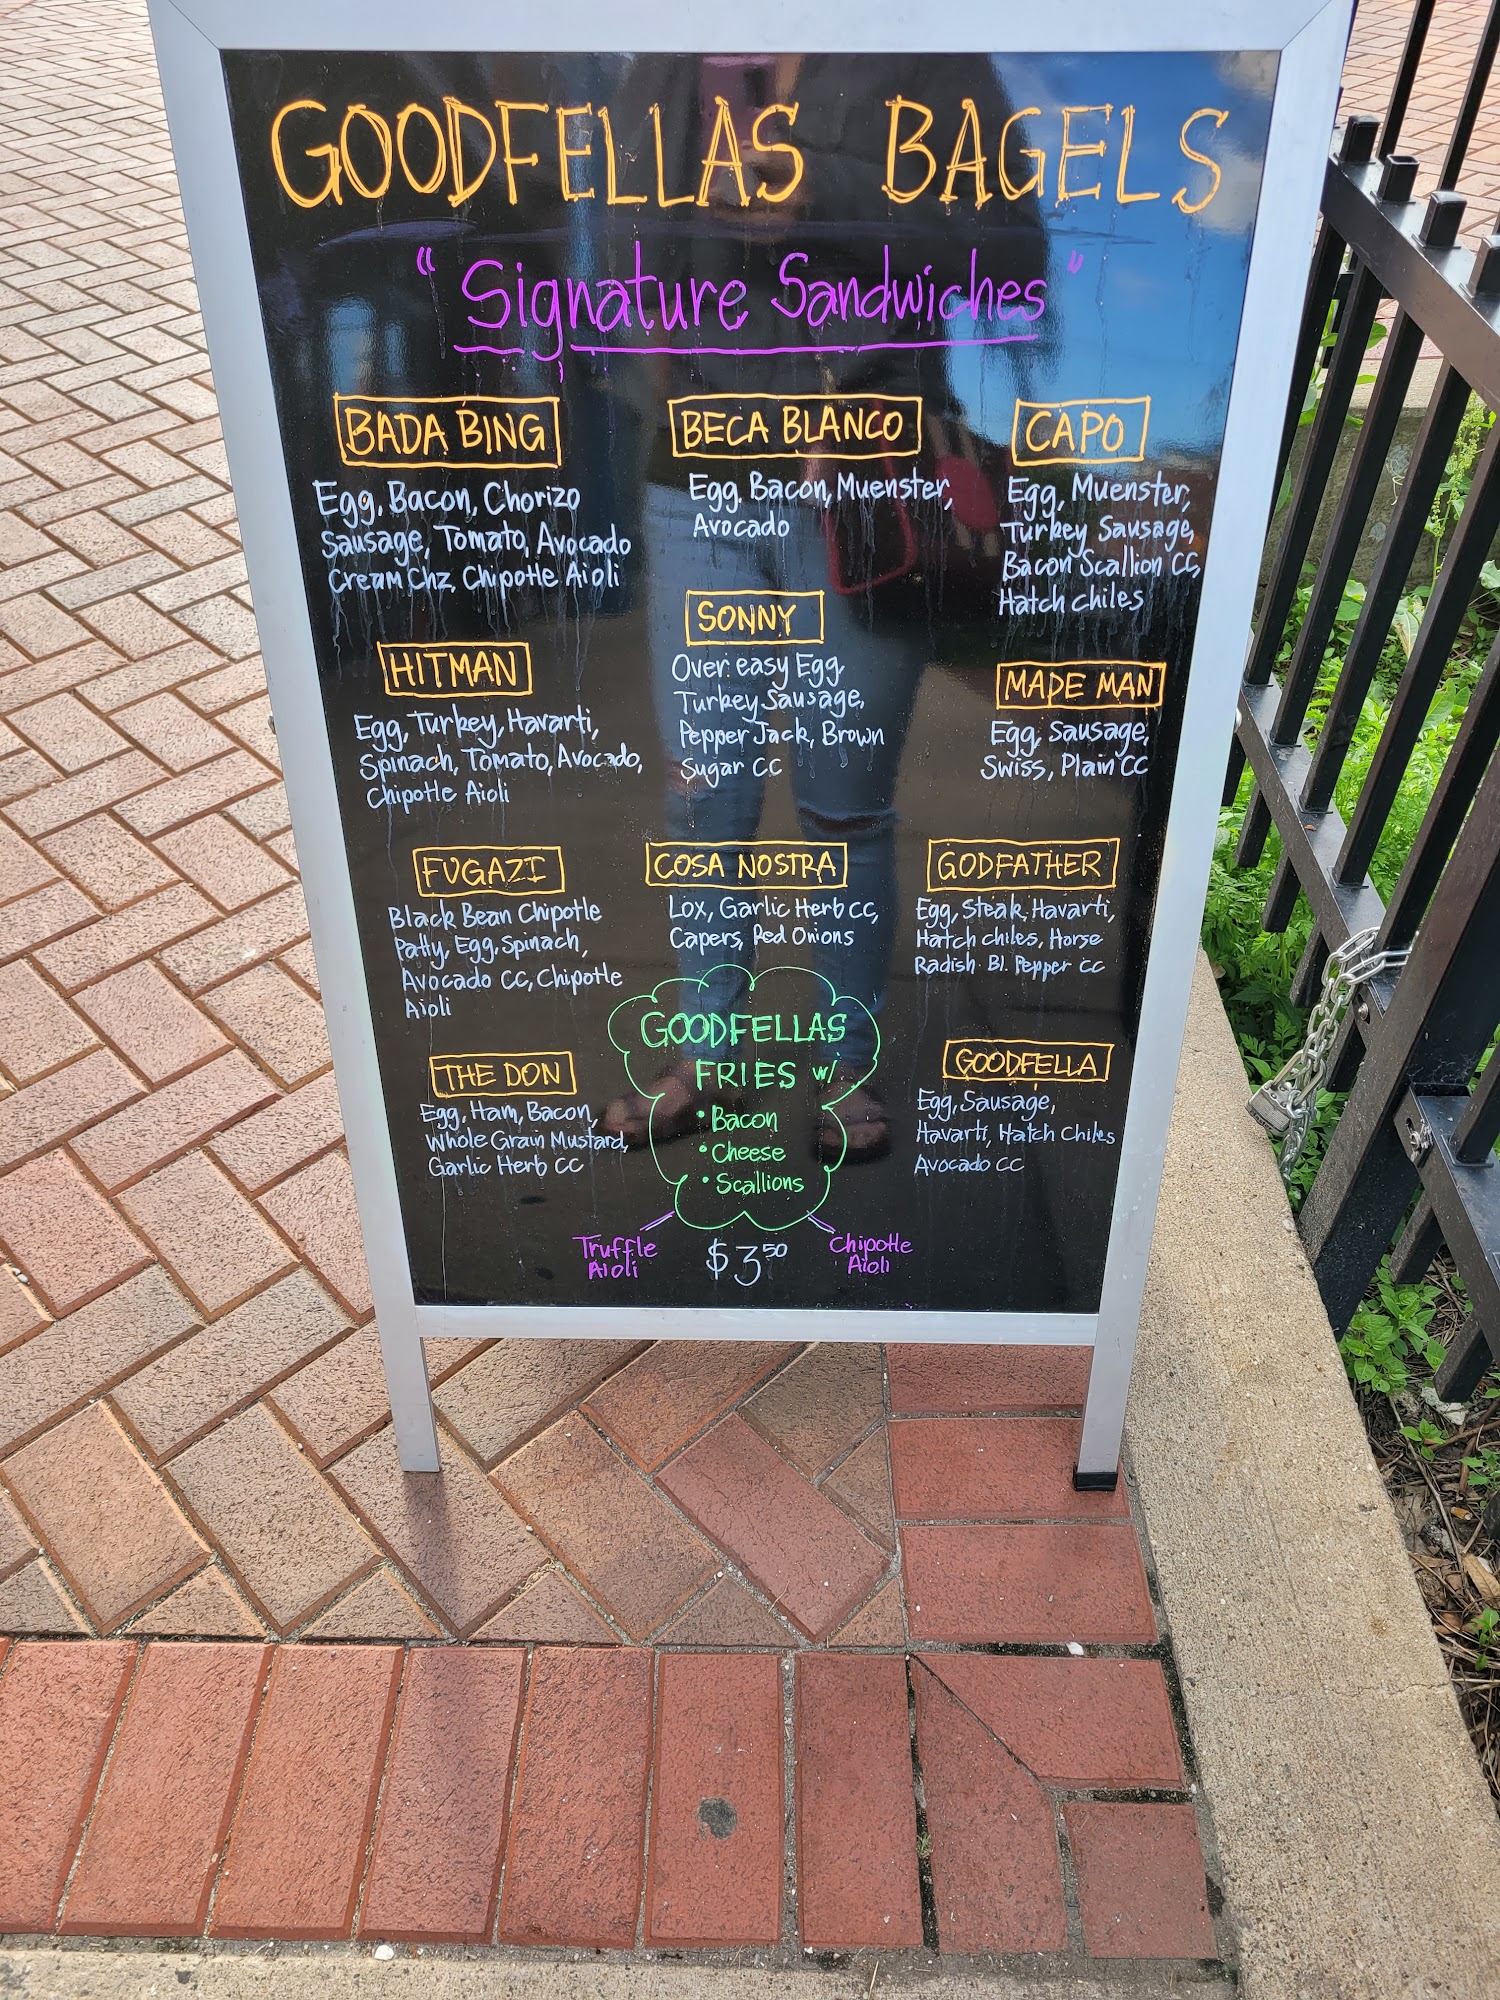 GOODFELLAS BAGELS
"Signature Sandwiches"
BADA BING
Egg, Bacon, Chorizo
Sausage, Tomato, Avocado
Cream Chz, Chipotle Aioli
BECA BLANCO
Egg, Bacon, Muenster,
Avocado
CAPO
Egg, Muenster,
Turkey Sausage,
Bacon Scallion CC,
Hatch chiles
HITMAN
Egg, Turkey, Havarti,
Spinach, Tomato, Avocado,
Chipotle Aioli
SONNY
Over easy Egg
Turkey Sausage,
Pepper Jack, Brown
Sugar CC
MADE MAN
Egg, Sausage,
Swiss, Plain CC
FUGAZI
Black Bean Chipotle
Patty, Egg, Spinach,
Avocado CC, Chipotle
Aioli
COSA NOSTRA
Lox, Garlic Herb CC,
Capers, Red Onions
GODFATHER
Egg, Steak, Havarti,
Hatch chiles, Horse
Radish Bl. Pepper CC
THE DON
Egg, Ham, Bacon,
Whole Grain Mustard,
Garlic Herb CC
GOODFELLAS
FRIES w/
• Bacon
• Cheese
• Scallions
Truffle
Aioli
$3.50
Chipotle
Aioli
GOODFELLA
Egg, Sausage,
Havarti, Hatch Chiles
Avocado CC